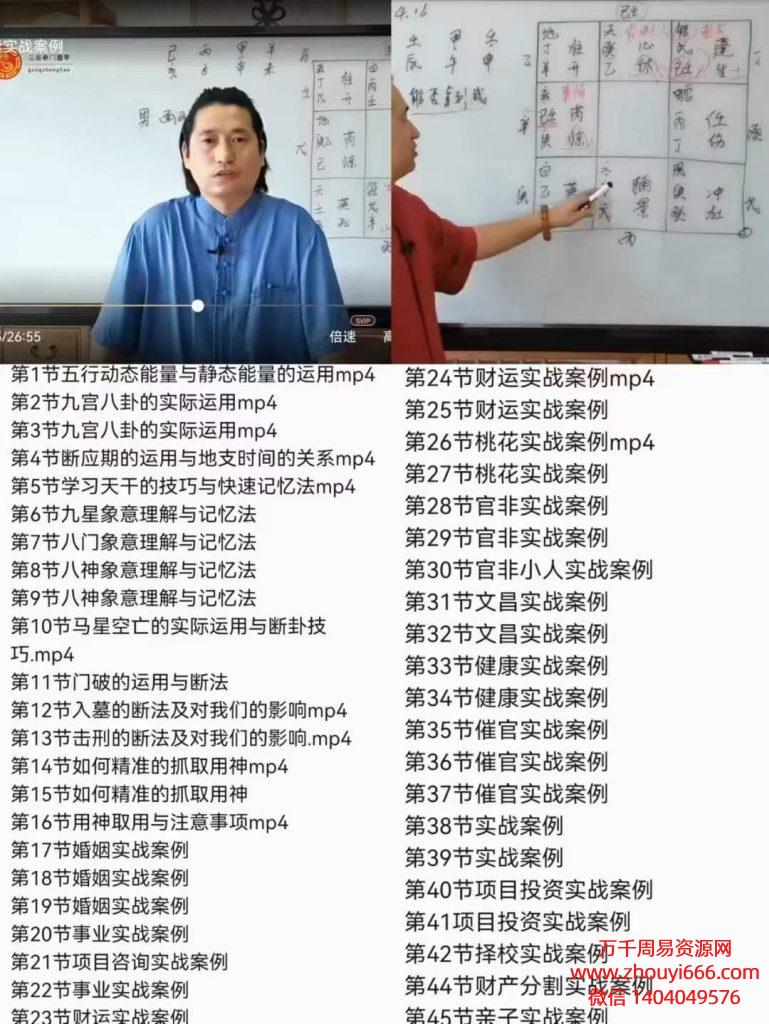 运实战案例
gongzhonghao
/26:55
SVIP
倍速
4.16
壬 甲 壬
辰 午 申
能否拿到钱
第1节五行动态能量与静态能量的运用mp4
第2节九宫八卦的实际运用mp4
第3节九宫八卦的实际运用mp4
第4节断应期的运用与地支时间的关系mp4
第5节学习天干的技巧与快速记忆法mp4
第6节九星象意理解与记忆法
第7节八门象意理解与记忆法
第8节八神象意理解与记忆法
第9节八神象意理解与记忆法
第10节马星空亡的实际运用与断卦技
巧.mp4
第11节门破的运用与断法
第12节入墓的断法及对我们的影响mp4
第13节击刑的断法及对我们的影响.mp4
第14节如何精准的抓取用神mp4
第15节如何精准的抓取用神
第16节用神取用与注意事项mp4
第17节婚姻实战案例
第18节婚姻实战案例
第19节婚姻实战案例
第20节事业实战案例
第21节项目咨询实战案例
第22节事业实战案例
第23节财运实战案例
第24节财运实战案例mp4
第25节财运实战案例
第26节桃花实战案例mp4
第27节桃花实战案例
第28节官非实战案例
第29节官非实战案例
第30节官非小人实战案例
第31节文昌实战案例
第32节文昌实战案例
第33节健康实战案例
第34节健康实战案例
第35节催官实战案例
第36节催官实战案例
第37节催官实战案例
第38节实战案例
第39节实战案例
第40节项目投资实战案例
第41项目投资实战案例
第42节择校实战案例
第44节财产分割实战案例
第45节亲子实战案例
万千周易资源网
www.zhouyi666.com
微信 1404049576